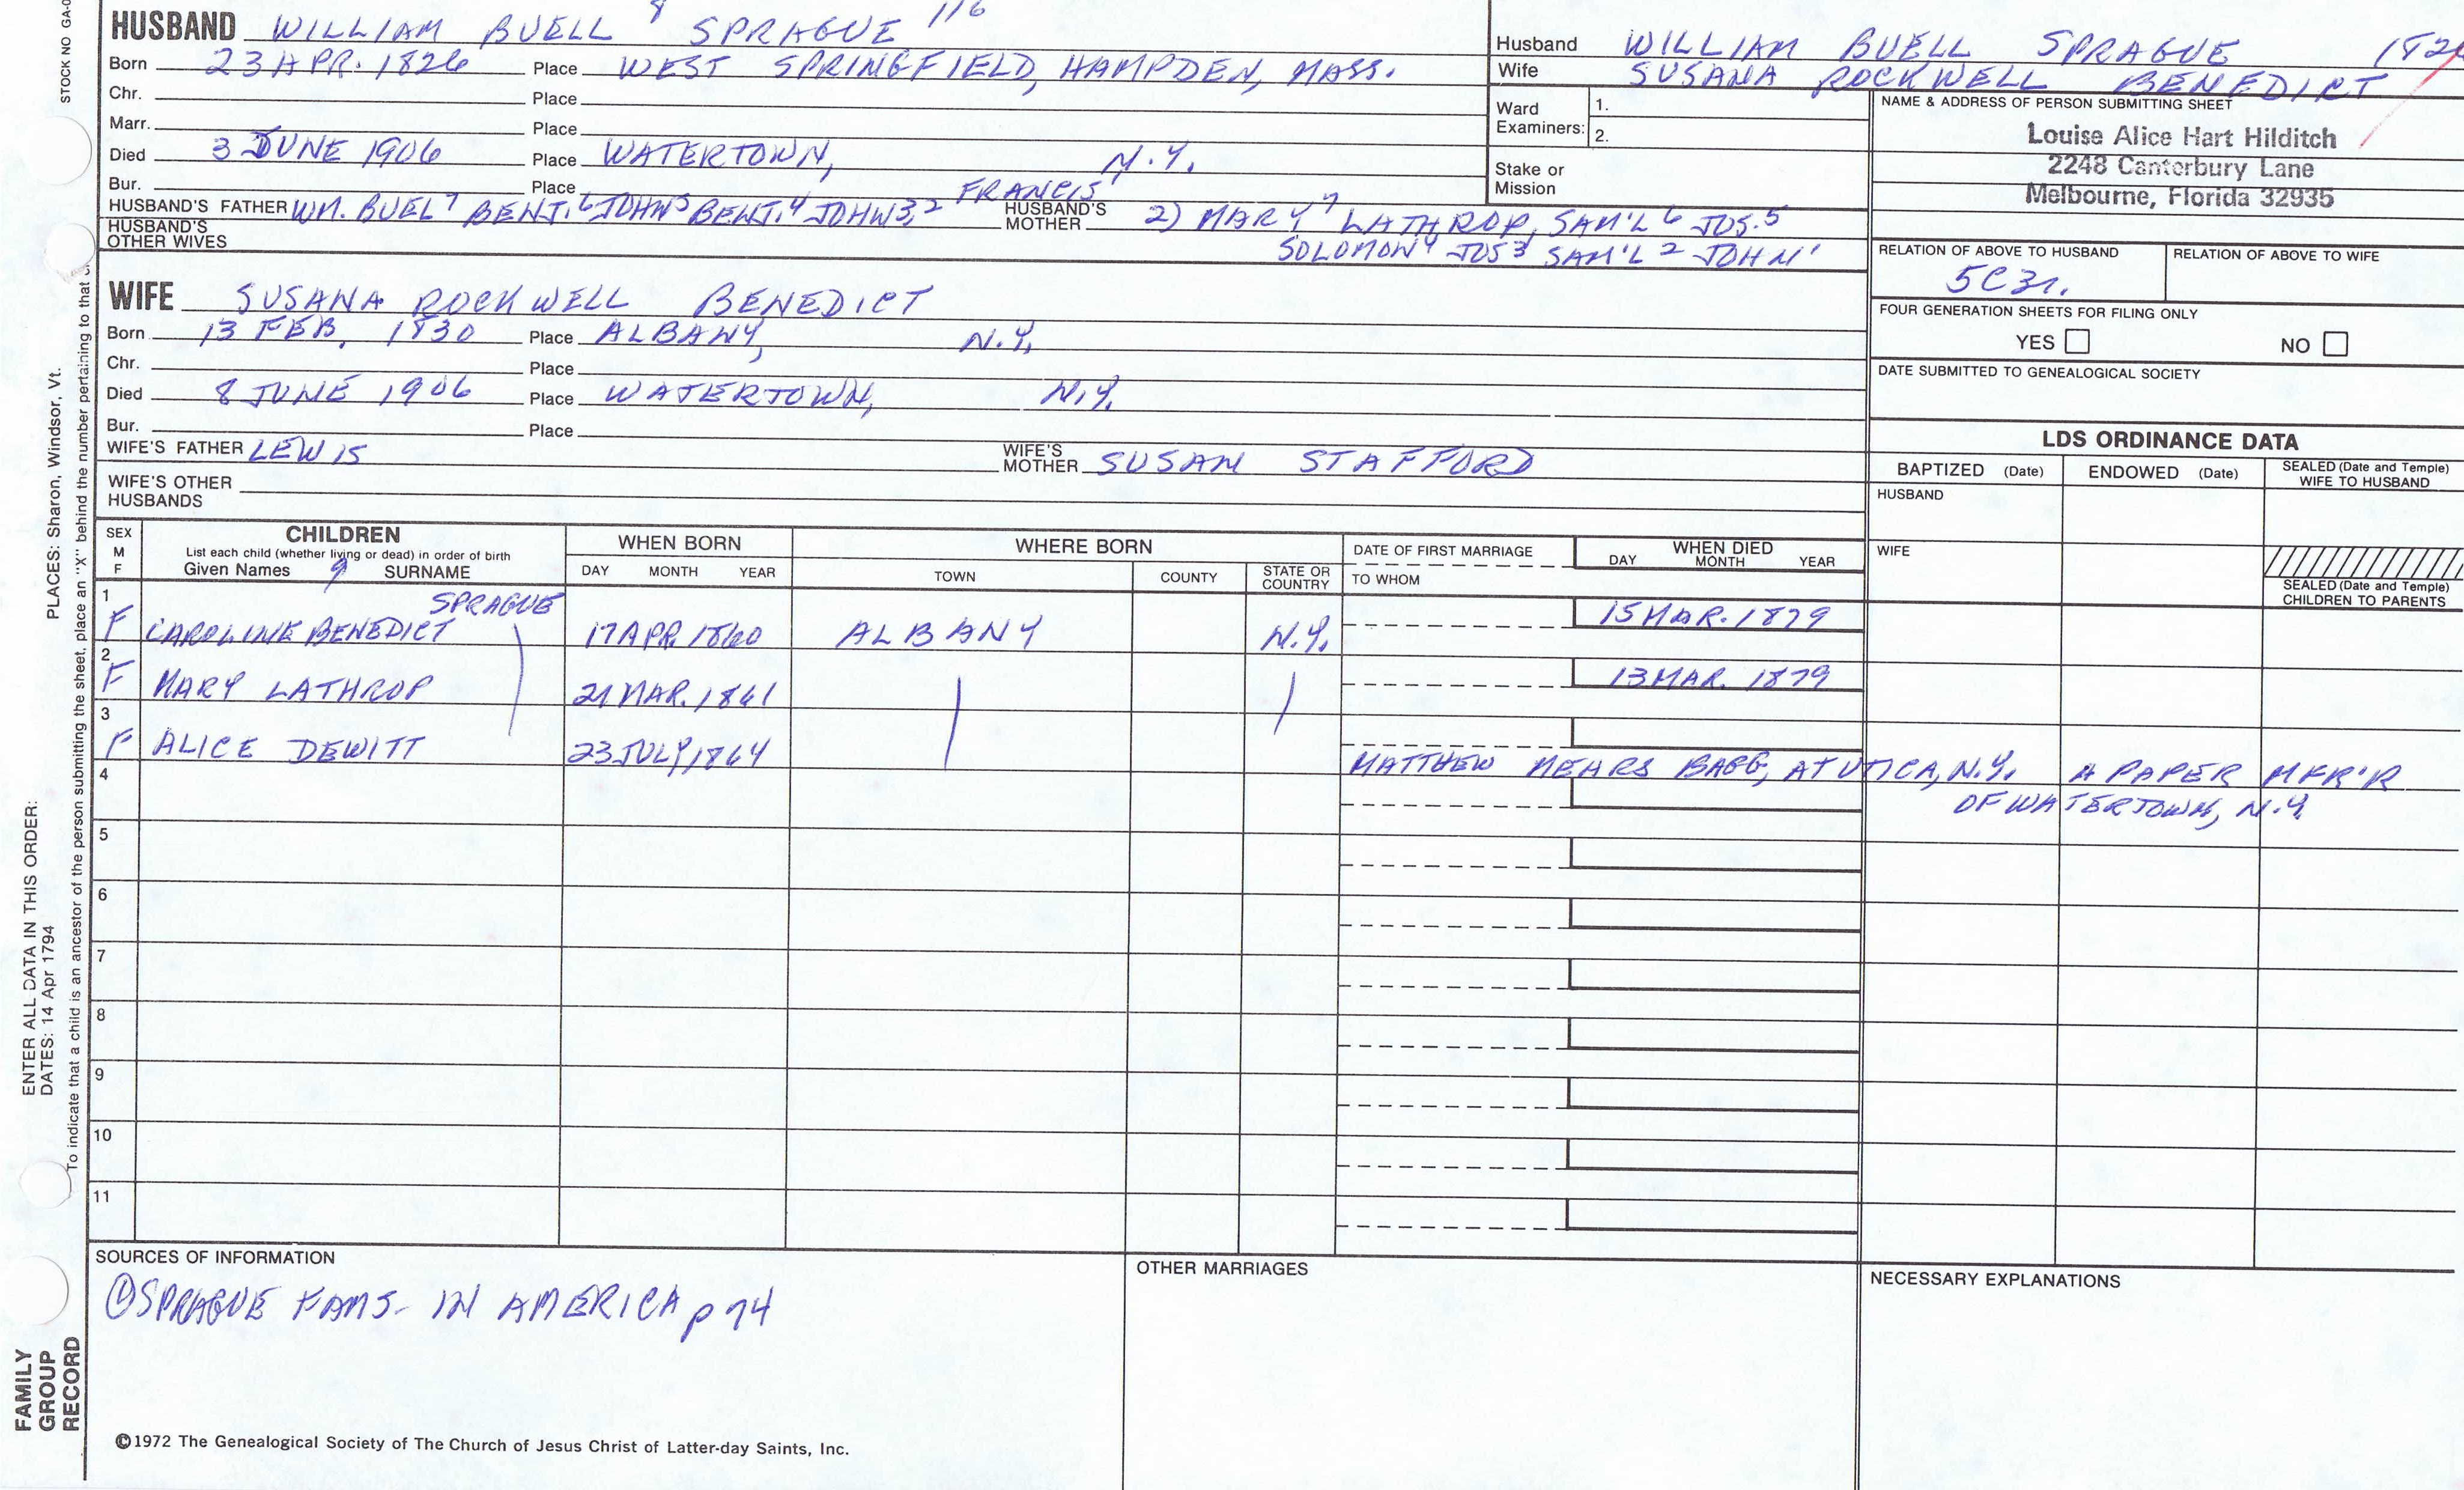 STOCK NO GA-0
PLACES: Sharon, Windsor, Vt.
ENTER ALL DATA IN THIS ORDER:
DATES: 14 Apr 1794
To indicate that a child is an ancestor of the person submitting the sheet, place an "X" behind the number pertaining to that
FAMILY
GROUP
RECORD
HUSBAND WILLIAM BUELL 8 SPRAGUE 116
Born 23 APR. 1826 Place WEST SPRINGFIELD, HAMPDEN, MASS.
Chr. Place
Marr. Place
Died 3 JUNE 1906 Place WATERTOWN, N.Y.
Bur. Place
HUSBAND'S FATHER WM. BUEL 7 BENJ. 6 JOHN 5 BENJ. 4 JOHN 3, 2 FRANCIS 1 HUSBAND'S MOTHER 2) MARY 7 LATHROP, SAM'L 6 JOS. 5
HUSBAND'S OTHER WIVES
SOLOMON 4 JOS 3 SAM'L 2 JOHN 1
WIFE SUSANA ROCKWELL BENEDICT
Born 13 FEB. 1830 Place ALBANY, N.Y.
Chr. Place
Died 8 JUNE 1906 Place WATERTOWN, N.Y.
Bur. Place
WIFE'S FATHER LEWIS WIFE'S MOTHER SUSAN STAFFORD
WIFE'S OTHER HUSBANDS
Husband WILLIAM BUELL SPRAGUE 182
Wife SUSANA ROCKWELL BENEDICT
Ward Examiners: 1.
2.
Stake or Mission
NAME & ADDRESS OF PERSON SUBMITTING SHEET
Louise Alice Hart Hilditch
2248 Canterbury Lane
Melbourne, Florida 32935
RELATION OF ABOVE TO HUSBAND RELATION OF ABOVE TO WIFE
5C3r.
FOUR GENERATION SHEETS FOR FILING ONLY
YES NO
DATE SUBMITTED TO GENEALOGICAL SOCIETY
LDS ORDINANCE DATA
BAPTIZED (Date) ENDOWED (Date) SEALED (Date and Temple) WIFE TO HUSBAND
HUSBAND
WIFE
SEALED (Date and Temple) CHILDREN TO PARENTS
SEX M F
CHILDREN
List each child (whether living or dead) in order of birth
Given Names 9 SURNAME
WHEN BORN
DAY MONTH YEAR
WHERE BORN
TOWN COUNTY STATE OR COUNTRY
DATE OF FIRST MARRIAGE
TO WHOM
WHEN DIED
DAY MONTH YEAR
1 SPRAGUE 15 MAR. 1879
F CAROLINE BENEDICT 17 APR. 1860 ALBANY N.Y.
2 13 MAR. 1879
F MARY LATHROP 21 MAR. 1861
3
F ALICE DEWITT 23 JULY, 1864 MATTHEW MEARS BAGG, AT UTICA, N.Y. A PAPER MFR'R
4 OF WATERTOWN, N.Y.
5
6
7
8
9
10
11
SOURCES OF INFORMATION
① SPRAGUE FAMS- IN AMERICA p 74
OTHER MARRIAGES
NECESSARY EXPLANATIONS
©1972 The Genealogical Society of The Church of Jesus Christ of Latter-day Saints, Inc.